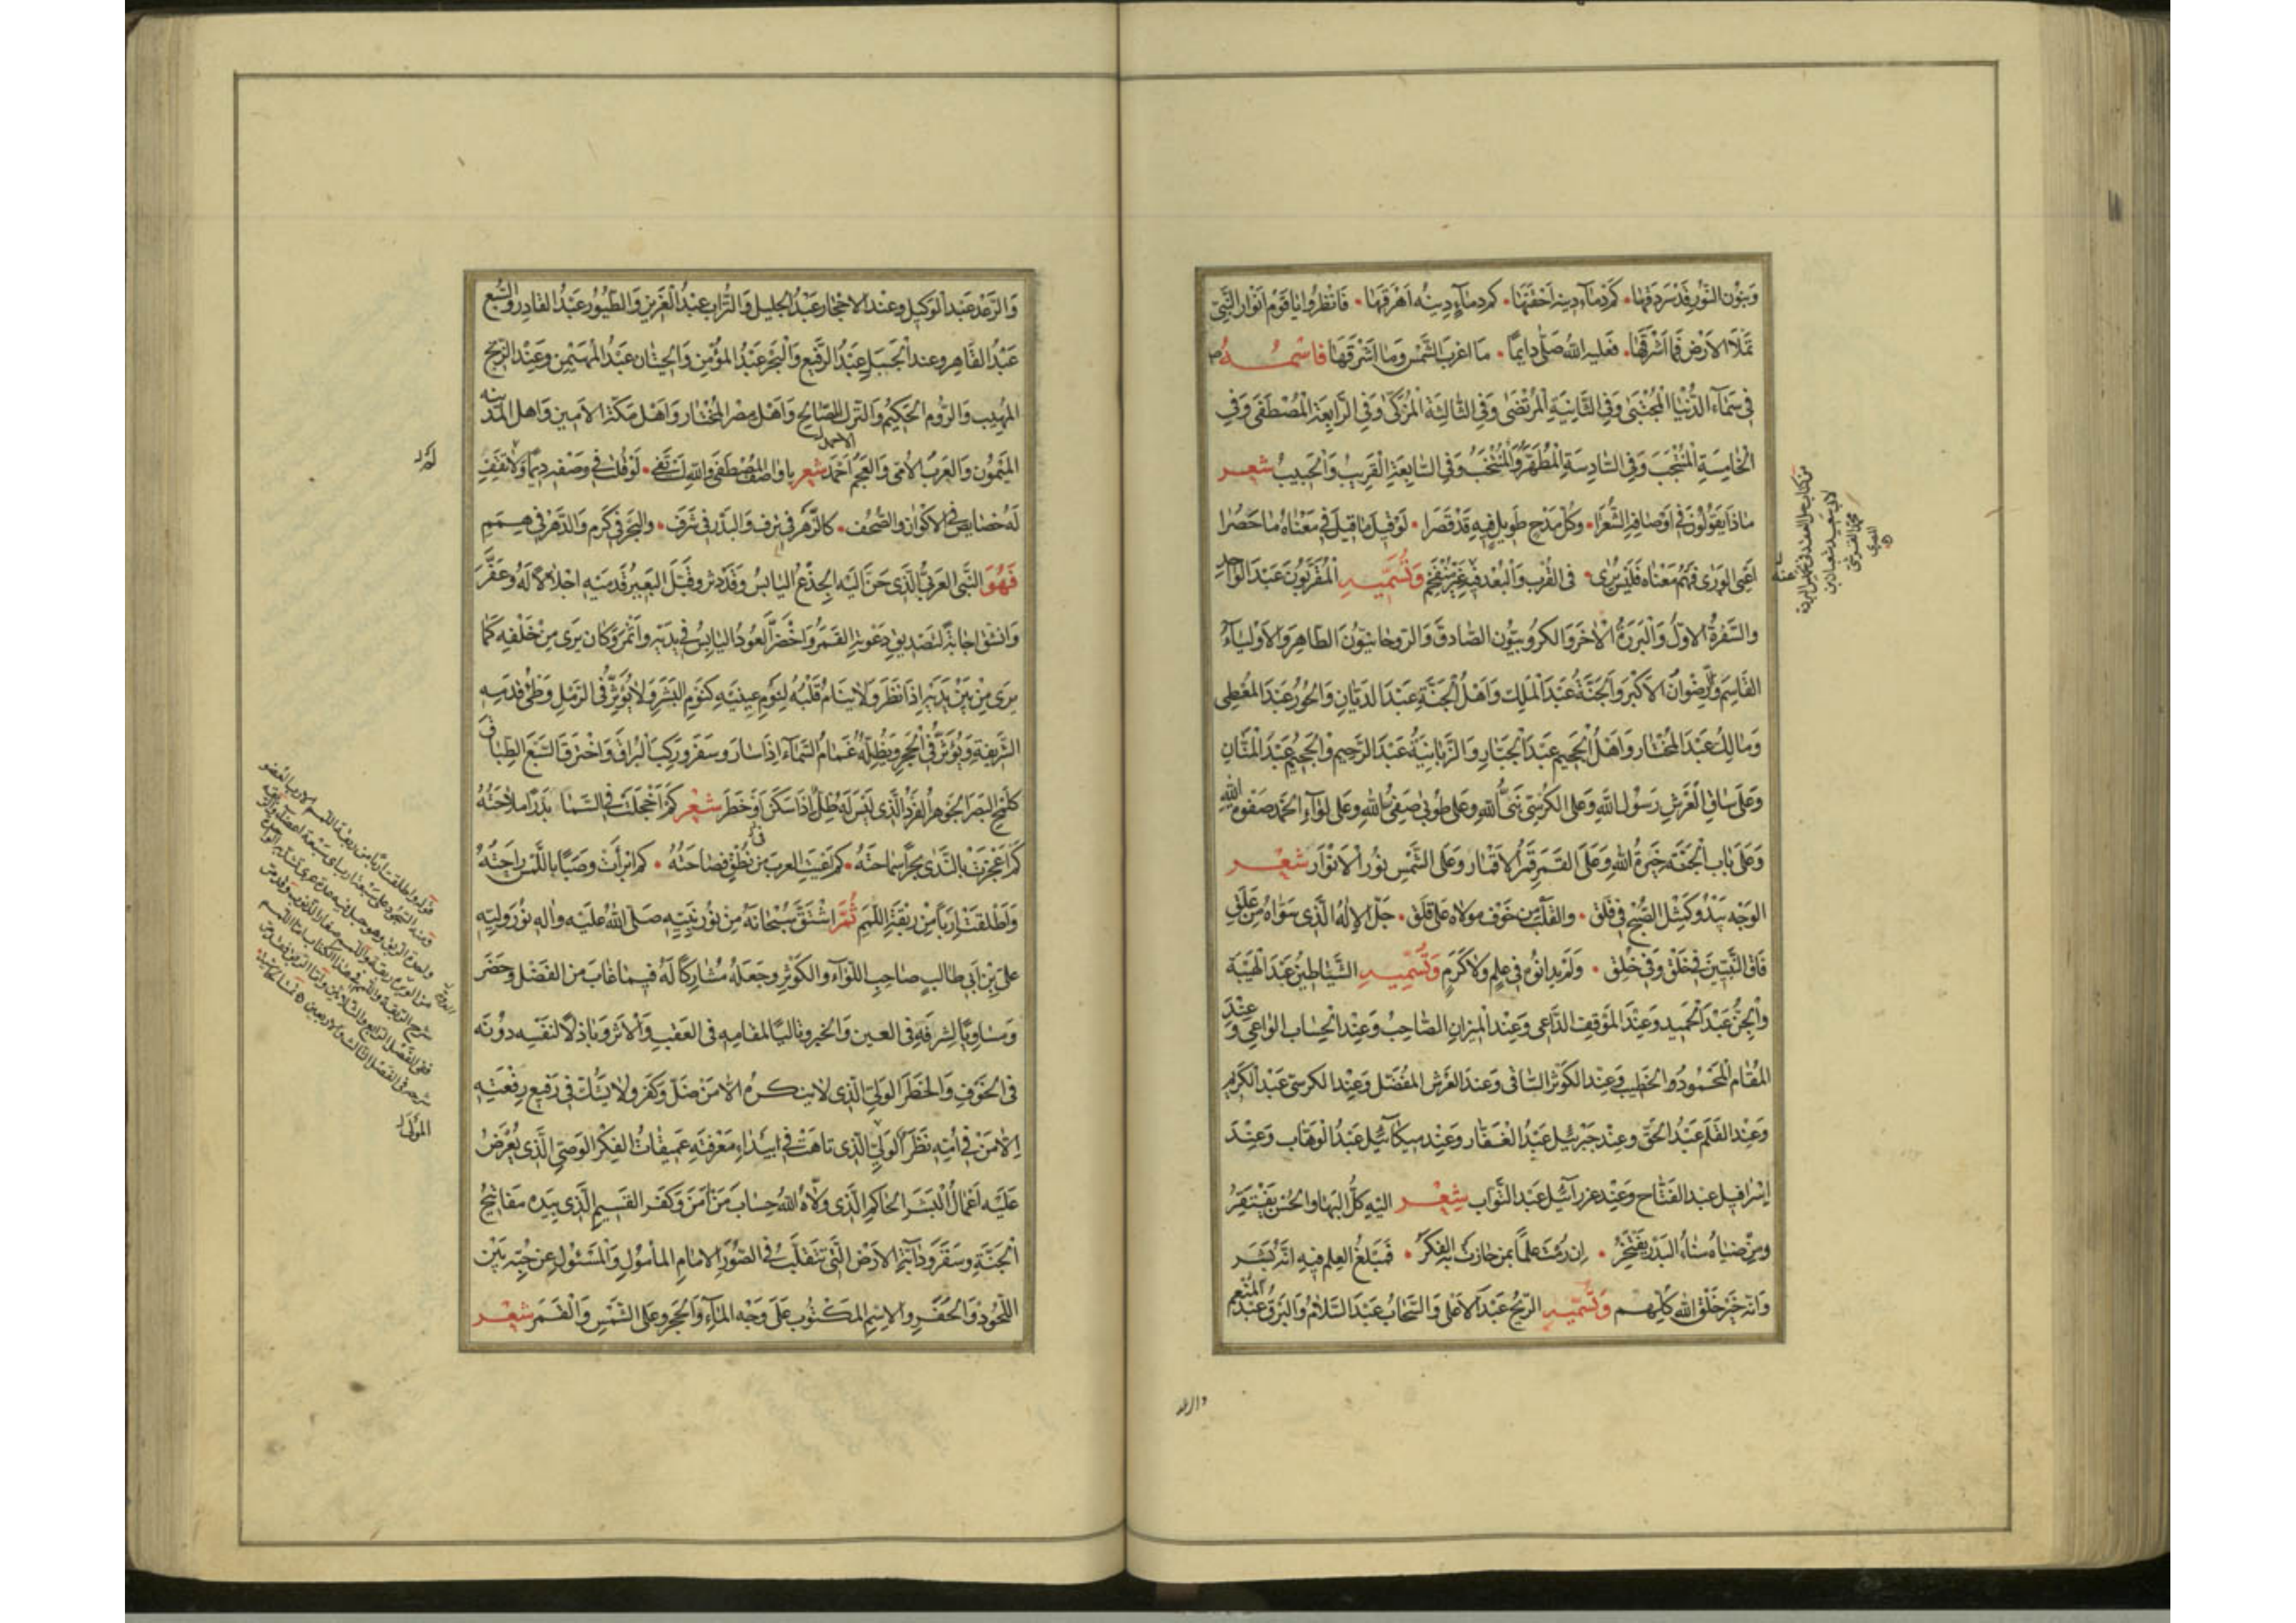 وَبَنُون النُّورِ قَدْ سَرْدَقَهَا • كَمْ دِمَآءٍ دِينُه اَحْقَنَهَا • كم دِمَآءٍ دِينُه اَهْرَقَهَا • فَانْظُرُوا يَا قَوْمِ اَنْوَارَ النَّبِيّ
تَمْلَأ الاَرْضَ فَمَا اَشْرَقَهَا • فَعَليه اللهُ صَلّى دايماً • ما اغربَ الشَّمْس وَما اشرقَهَا فاسْمُـــهُ
فى سَمآءِ الدُّنْيَا الْمُجْتَبَى وَفى الثَّانِيَةِ الْمُرْتَضَى وَفى الثَّالِثَةِ الْمُزَكَّى وَفى الرَّابِعَةِ الْمُصْطَفَى وَفِى
الْخَامِسَةِ الْمُنْتَجَب وَفِى السَّادِسَةِ الْمُطَهَّرُ وَالْمُنْتَخَبُ وَفى السَّابِعَةِ الْقَرِيبُ وَالْحَبِيبُ شعـــر
ماذَا يَقُولُونَ فى اَوْصَافِهِ الشُّعَرَا • وَكُلُّ مَدْحٍ طَوِيلٍ فِيهِ قَدْ قَصَرَا • لَوْ قِيلَ مَا قِيلَ فى مَعْنَاهُ مَا حَصَرا
اَعْيَى الوَرَى فَهْمُ مَعْنَاه فَلَيْسَ يُرَى • فى القُرْبِ وَالْبُعْدِ فِيهِ غَيْرُ مُنْفَحِمٍ وَتُسَمِّيـــهِ الْمُقَرَّبُونَ عَبْدَ الوَاحِدِ
والسَّفَرَةُ الاوّلَ وَالْبَرَرَةُ الْاَخِرَ وَالكروبيُّون الصَّادِقَ وَالرّوحَانِيّونَ الطَّاهِرَ وَالاَوْلِيَآءُ
القَاسِمَ وَالرِّضْوَانُ الاَكْبَرَ وَالجَنَّةُ عَبْدَ الْمَلِكِ وَاَهْلُ الْجَنَّةِ عَبْدَ الدَّيَّانِ وَالحُورُ عَبْدَ الْمُعْطِى
وَمَالِكُ عَبْدَ الْمُخْتَار وَاَهْلُ الْجَحِيمِ عَبْدَ الْجَبَّارِ وَالزَّبَانِيَةُ عَبْدَ الرَّحِيم وَالجَحِيمُ عَبْدَ الْمَنَّانِ
وَعَلَى سَاقِ الْعَرْشِ رَسُول اللهِ وَعَلَى الْكُرْسِيّ نَبِيُّ اللهِ وَعَلَى طُوبَى صَفِيُّ اللهِ وَعَلَى لِوَآءِ الحَمْدِ صَفْوةُ اللهِ
وَعَلَى بابِ الْجَنَّةِ خِيَرَةُ اللهِ وَعَلَى الْقَمَرِ قَمَرُ الاَقْمَارِ وَعَلَى الشَّمْسِ نُورُ الاَنْوَارِ شعـــر
الوَجْه يَبْدُو كَمِثْلِ الصُّبْحِ فى فَلَقِ • وَالقَلْبُ مِن خَوْفِ مَولاه عَلَى قَلَقِ • جَلّ الاِلَهُ الَّذِى سَوَّاهُ مِنْ عَلَقِ
فَاقَ النَّبِيّينَ فى خَلْقٍ وَفى خُلُقِ • وَلَمْ يُدَانُوهُ فى عِلْمٍ وَلَا كَرَمِ وَتُسَمِّيـــهِ الشَّيَاطِينُ عَبْدَ الْهَيْبَة
وَالْجِنُّ عَبْدَ الْحَمِيدِ وَعِنْدَ المَوْقِفِ الدَّاعِى وَعِنْدَ المِيزَانِ الصَّاحِبُ وَعِنْدَ الْحِسَابِ الوَاعِى وَعِنْدَ
المَقَامِ الْمَحْمُودِ الخَطِيبُ وَعِنْد الْكَوْثَرِ السَّاقِى وَعِنْدَ الْعَرْش المُفَضَّلُ وَعِنْدَ الكرسىّ عَبْدُ الْكَرِيمِ
وَعِنْد القَلَم عَبْدُ الحَقّ وَعِنْدَ جَبْرَئِيل عَبْدُ الْغَفَّار وَعِنْد ميكَآئِيل عَبْدُ الْوَهّاب وَعِنْدَ
اِسْرَافِيل عبد الفَتَّاح وَعِنْد عِزْرَآئِيل عَبْد التَّوَّاب شِعْـــر اليْهِ كُلُّ البَهَا وَالْحُسْنِ يَفْتَقِرُ
وَمِنْ ضِيَاهُ سَنَاءُ الْبَدْرِ يَفْتَخِرُ • اِن رُمْتَ عِلْمًا بِمَن حَارَتْ بِهِ الفِكَرُ • فَمَبْلَغُ العِلْمِ فِيهِ اَنَّهُ بَشَر
وَانّه خَيْرُ خَلْقِ الله كلِّهِـــم وَتُسَمِّيـــهِ الرّيحُ عَبْدَ الاَعْلَى وَالسَّحَابُ عَبْدَ السَّلَامِ وَالبَرقُ عَبْدَ الْمُنْعِمِ
من كتاب حل العقد فى تخميس البردة
لابى سعيد شعبان بن
محمّد القرشى
المصرى
والرعد
وَالرَّعْد عَبْد الْوَكِيل وَعِنْدَ الاَحْجَار عَبْدُ الْجَلِيل وَالتُّرَابِ عَبْدُ الْعَزِيز وَالطّيُورِ عَبْدُ القَادِر وَالسَّبُع
عَبْدُ القَاهِر وعندَ الْجَبَلِ عَبْدُ الرَّفِيع وَالْبَحْرِ عَبْدُ المُؤْمِن وَالحِيتَان عَبْدُ الْمُهَيْمِن وَعِنْدَ الزّنج
المهيب وَالرُّوم الحَكِيم وَالتُّرْكِ الصَّالِح وَاَهْل مِصْر الْمُخْتَار وَاَهْل مَكَّة الاَمِين وَاَهل المَدينَه
الْمَيْمُون وَالعَرَب الاُمّى وَالعَجَم اَحْمَد شعر يا واصفَ المُصْطَفَى وَاللهِ لَسْتَ تَفِى • لَوْ قُلْتَ فى وَصْفِه دِيمًا وَلَا تَقِفِ
لَهُ خَصَايِصُ فى الاَكْوَان والصُّحُف • كالزَّهْر فى تَرَفٍ وَالبَدْرِ فى شَرَفٍ • وَالبَحْرِ فى كَرَم وَالدَّهْرِ فى هِمَمِ
فَهُوَ النَّبِىُّ العَرَبِىُّ الَّذِى حَنَّ الَيْهِ الجِذْعُ اليَابِسُ وَقَدْ دَثر وَقَبَّلَ البَعِيرُ قَدَمَيْهِ اجْلَالًا لَهُ وَعَفَّرَ
وَانشقّ اجَابَةً لِتَصْدِيقِ دَعْوَتِهِ القَمَرُ وَاخْضَرَّ العُودُ اليَابِسُ فى يَدَيْهِ وَاَثْمَرَ وَكَان يَرَى مِنْ خَلْفِه كَمَا
يَرَى مِنْ بَيْنِ يَدَيْهِ اِذَا نَظَرَ وَلَا يَنَامُ قَلْبُهُ لِنَوْم عَيْنَيْهِ كَنَوْمِ الْبَشَرِ وَلَا يُؤَثِّرُ فى الرَّمْلِ وَطْئُ قَدَمِه
الشَّرِيفَةِ وَيُؤَثِّرُ فى الْحَجَرِ وَيُظِلُّهُ غَمَامُ السَّمَآء اِذَا سَارَ وَسَفَرَ وَرَكِبَ البُرَاقَ وَاخْتَرَقَ السَّبْعَ الطِّبَاقَ
كَلَمْحِ البَصَر الجَوْهَر الفَرْدُ الَّذِى لَيْسَ لَهُ ظِلّ اِذَا سَكَنَ اَوْ خَطَرَ شعْر كَمْ اَخْجَلَتْ فى السَّمَا بَدْرًا مَلَاحَتُهُ
كَمْ اَعْجَزَتْ بِالنَّدَى بَحْرًا سَمَاحَتُهُ • كم اَعْيَتِ العربَ مِن نُطْقٍ فصَاحَتُهُ • كم اَبْرَأَتْ وصِبًا باللَّمْسِ رَاحَتُهُ
وَاَطْلَقَتْ اَرِبًا مِنْ رِبْقَةِ اللَّمَمِ ثُمَّ اشْتَقَّ سُبْحَانَهُ مِنْ نُورِ نَبِيِّهِ صَلَّى اللهُ عَلَيْهِ وَآله نُورَ وَلِيِّهِ
عَلىّ بْن اَبِى طَالِبٍ صَاحِبِ اللِّوَآءِ وَالكَوْثَرِ وَجَعَلَهُ مُشَارِكًا لَهُ فِيمَا غَابَ مِن الفَضْل وَحَضَر
وَمُسَاوِيًا لِشرفه فى العَيْنِ وَالخبرِ وَتَالِيًا لمقَامِه فى العَقِبِ وَالاَثَرِ وَبَاذِلًا لنَفْسِه دُونَه
فى الخَوْفِ وَالخَطَر الْوَلِىِّ الَّذِى لَا يُنكِرهُ الاَّ مَنْ ضَلّ وَكَفَر وَلَا يَشُكّ فى رَفِيعِ رِفْعَتِهِ
اِلّا مَنْ فى اُمِّهِ نَظَر الْوَلِىّ الَّذِى تَاهَتْ فى بَيْدَاءِ مَعْرِفَتِهِ عَمِيقَاتُ الفِكَر الوَصِىِّ الَّذِى يُعْرَضُ
عَلَيْهِ اَعْمَالُ الْبَشَر الحَاكِمِ الَّذِى وَلَّاهُ اللهُ حِسَابَ مَنْ آمَنَ وَكَفَر القَسِيمِ الَّذِى بِيَدِه مَفَاتِيحُ
الْجَنَّةِ وَسَقَر وَدَآبَّةِ الاَرْض الَّتِى تَتَقَلَّبُ فى الصُّوَر الِامَامِ المَأْمُولِ وَالْمَسْئُولِ عَن حُبِّه بَيْن
اللُّحُودِ وَالحُفَر وَالِاسْمِ المَكْتُوبِ عَلَى وَجْه المَآءِ وَالحَجَر وَعَلَى الشَّمْسِ وَالْقَمَر شعْـــر